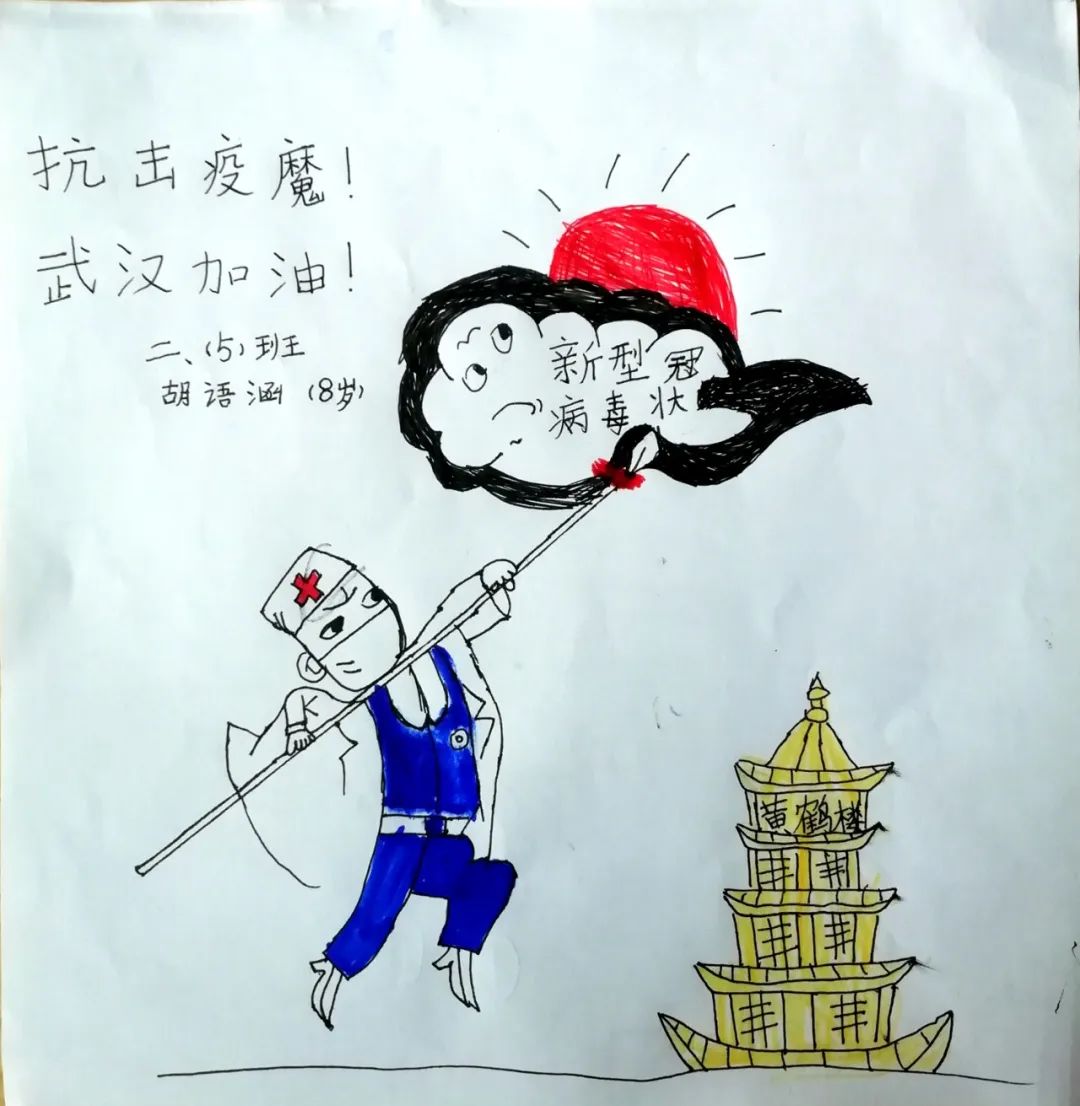 抗击疫魔！
武汉加油！
二、(5)班
胡语涵(8岁)
新型冠
病毒状
黄鹤楼